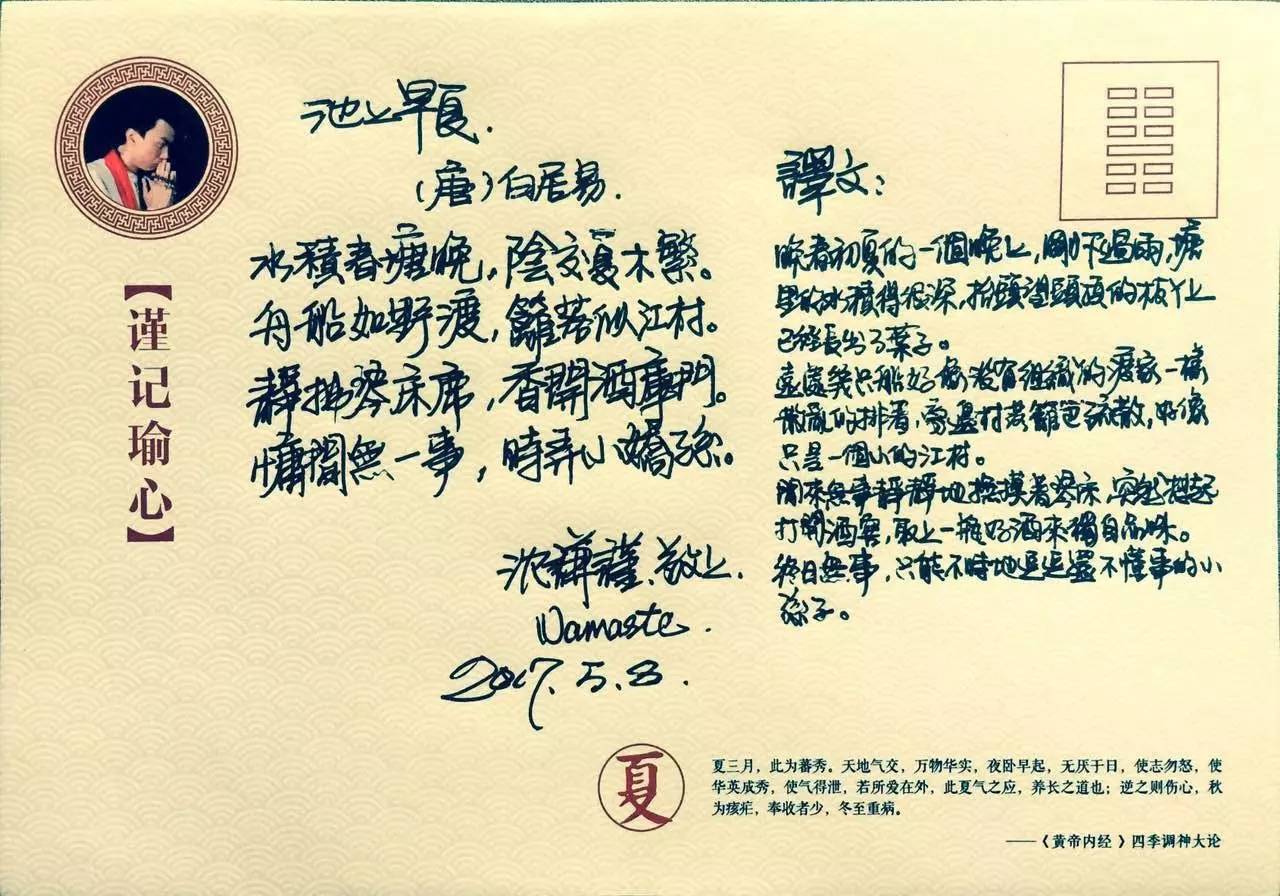 池上早夏.
(唐)白居易.
水積春塘晚，陰交夏木繁。
舟船如野渡，籬落似江村。
靜拂琴床席，香開酒庫門。
慵閒無一事，時弄小嬌孫。
沈 謹.敬上.
Namaste.
2017.5.8.
譯文：
晚春初夏的一個晚上，剛下過雨，塘
里的水積得很深，抬頭望頭頂的枝丫上
已經長出了葉子。
遠處幾只船好像沒有組織的渡家一樣
散亂的排着，旁邊村落籬笆疏散，好像
只是一個小的江村。
閒來無事靜靜地撫摸着琴床，突然想起
打開酒窖，取上一瓶好酒來獨自品味。
終日無事，只能不時地逗逗還不懂事的小
孫子。
【谨记瑜心】
夏
夏三月，此为蕃秀。天地气交，万物华实，夜卧早起，无厌于日，使志勿怒，使
华英成秀，使气得泄，若所爱在外，此夏气之应，养长之道也；逆之则伤心，秋
为痎疟，奉收者少，冬至重病。
——《黄帝内经 》四季调神大论